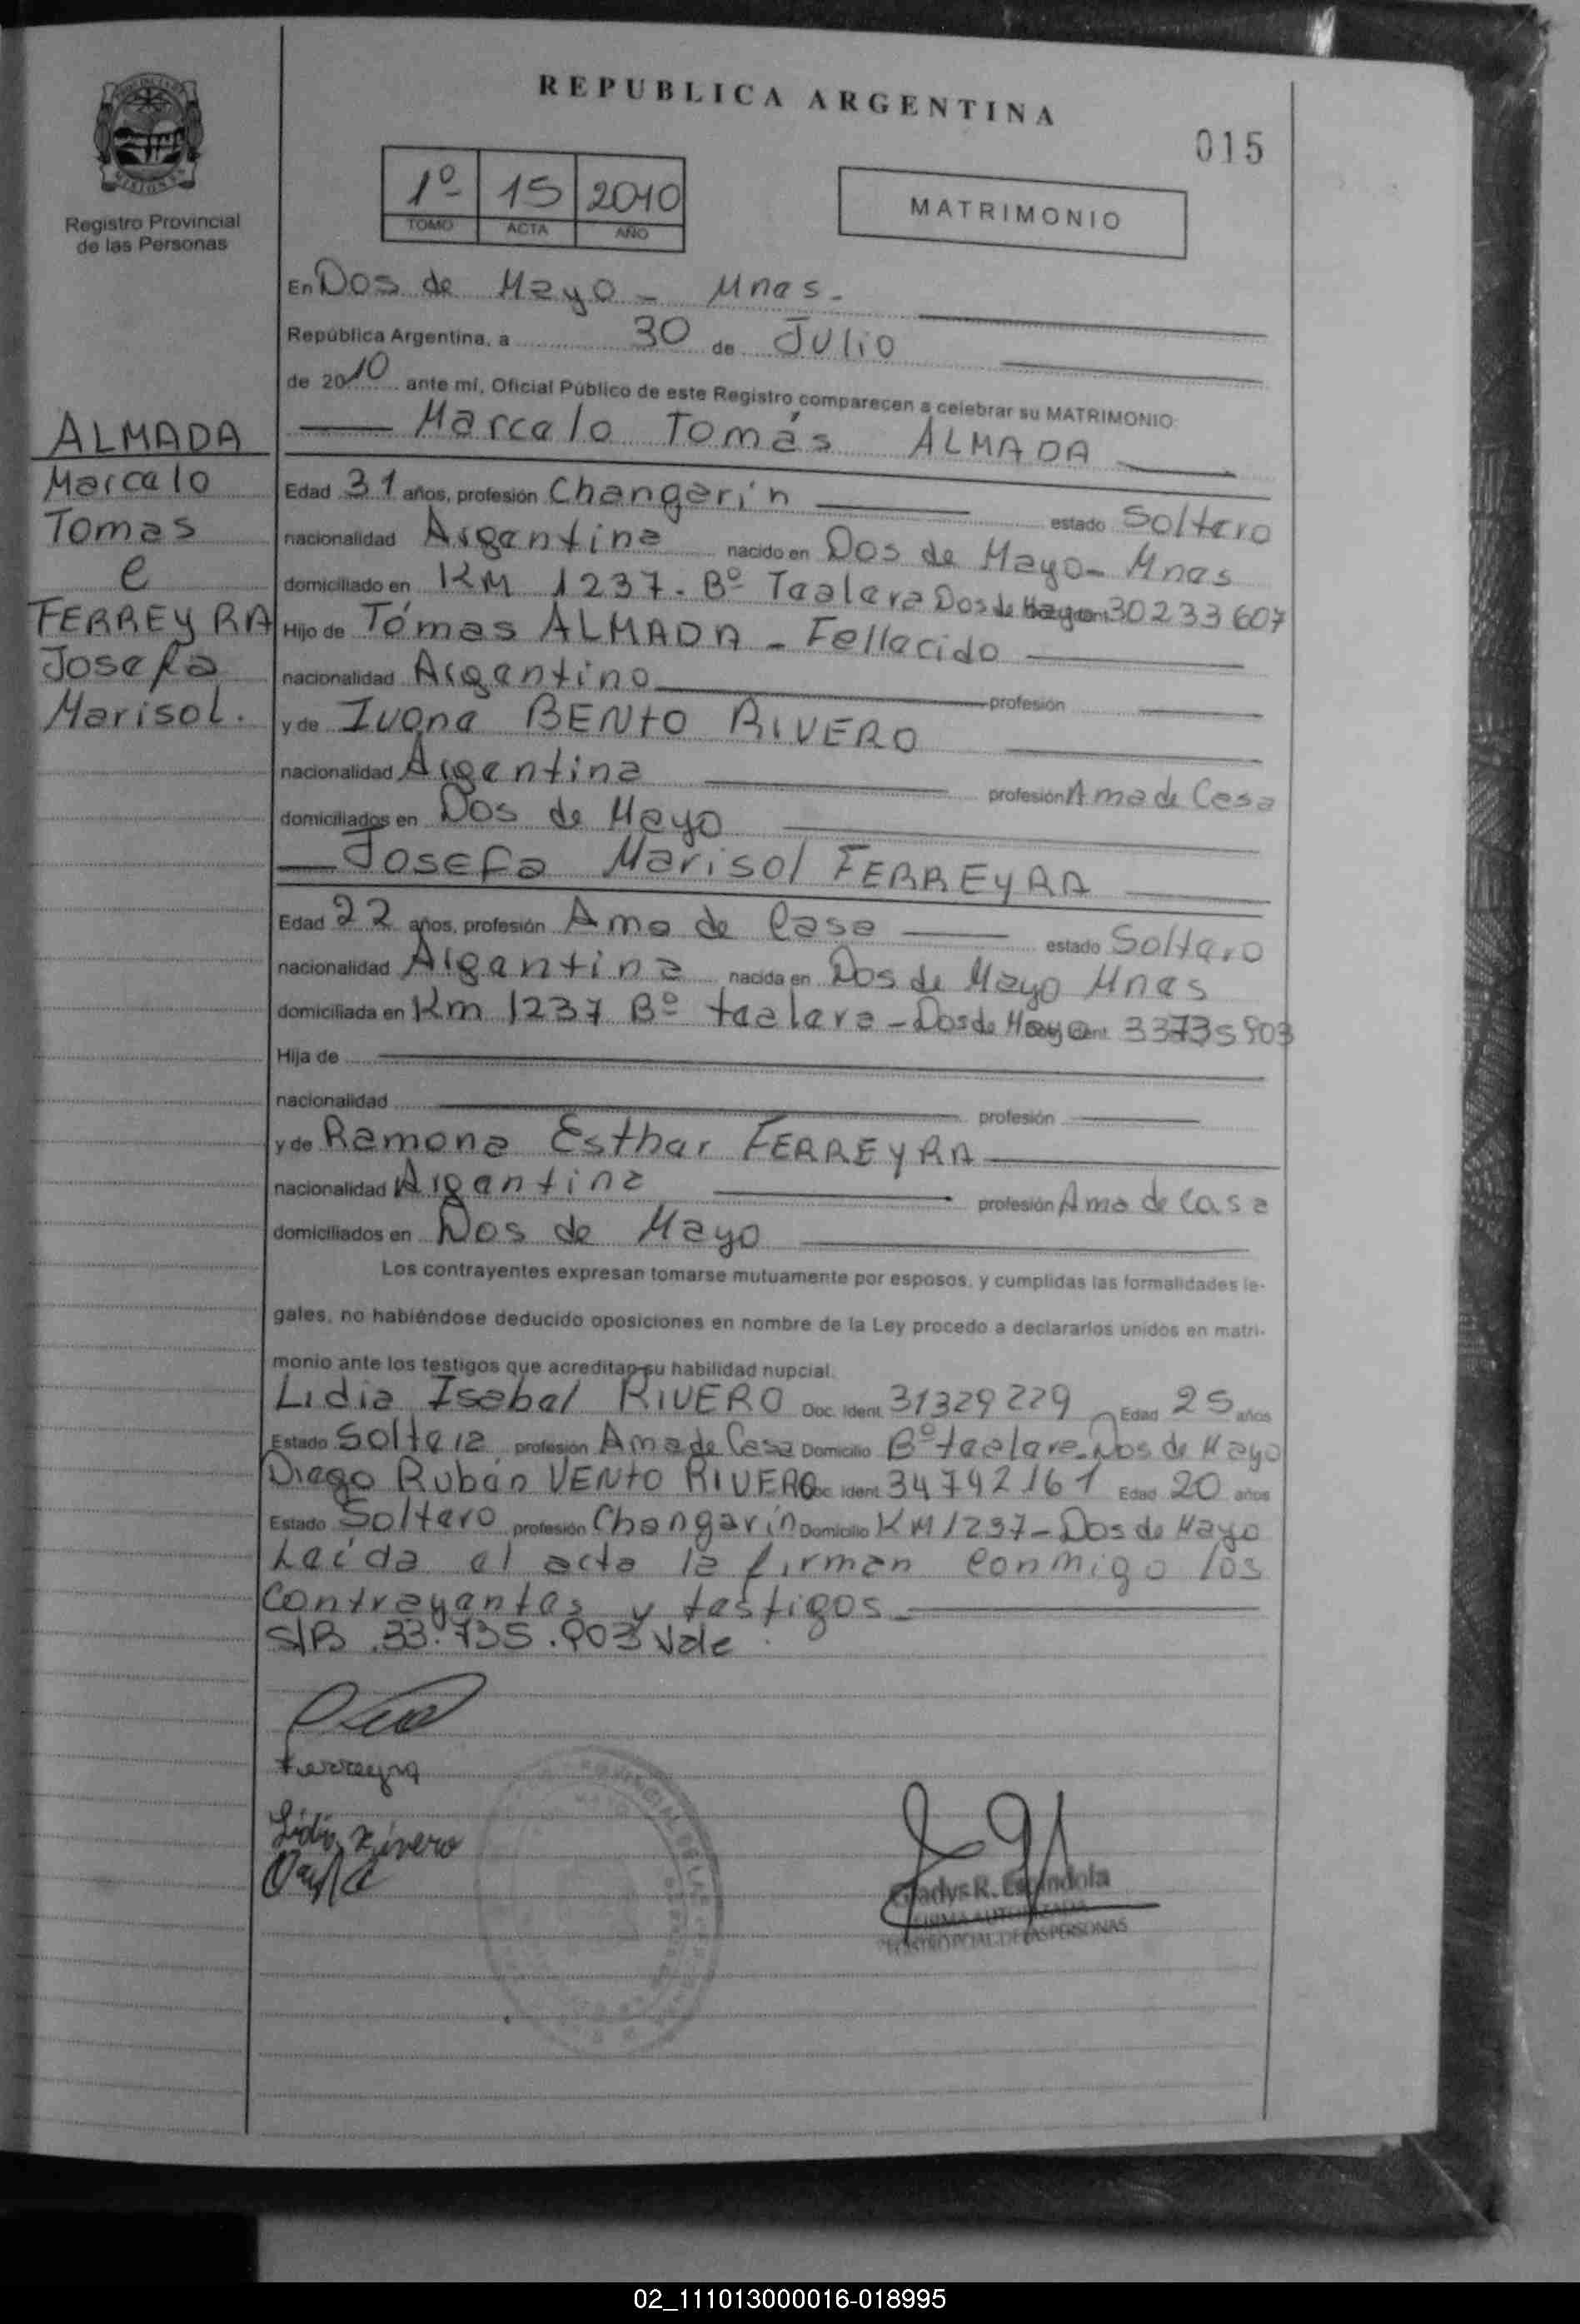 REPUBLICA ARGENTINA
015
Registro Provincial
de las Personas
1º 15 2010
TOMO ACTA AÑO
MATRIMONIO
En Dos de Mayo - Mnes.
República Argentina, a 30 de Julio
de 2010 ante mí, Oficial Público de este Registro comparecen a celebrar su MATRIMONIO:
Marcelo Tomás ALMADA
ALMADA
Marcelo
Tomas
e
FERREYRA
Josefa
Marisol.
Edad 31 años, profesión Changarín estado Soltero
nacionalidad Argentina nacido en Dos de Mayo - Mnes
domiciliado en KM 1237. Bº Tealera Dos de Mayo 30233607
Hijo de Tómas ALMADA - Fellecido
nacionalidad Argentino profesión
y de Ivona BENtO RIVERO
nacionalidad Argentina profesión Ama de Casa
domiciliados en Dos de Mayo
Josefa Marisol FERREYRA
Edad 22 años, profesión Ama de Casa estado Soltero
nacionalidad Argentina nacida en Dos de Mayo Mnes
domiciliada en Km 1237 Bº tealera - Dos de Mayo Ident. 33735903
Hija de
nacionalidad profesión
y de Ramona Esther FERREYRA
nacionalidad Argentina profesión Ama de Casa
domiciliados en Dos de Mayo
Los contrayentes expresan tomarse mutuamente por esposos, y cumplidas las formalidades le-
gales, no habiéndose deducido oposiciones en nombre de la Ley procedo a declararlos unidos en matri-
monio ante los testigos que acreditan su habilidad nupcial.
Lidia Isabel RIVERO Doc. Ident. 31329229 Edad 25 años
Estado Soltera profesión Ama de Casa Domicilio Bº tealera - Dos de Mayo
Diego Rubén VENtO RIVERO Doc. Ident. 34792161 Edad 20 años
Estado Soltero profesión Changarín Domicilio KM 1237 - Dos de Mayo
Leída el acta la firman conmigo los
contrayentes y testigos
S/B .33.735.903 Vale
Ferreyra
Lidia Rivero
Gladys R. Espindola
FIRMA AUTORIZADA
REGISTRO PCIAL. DE LAS PERSONAS
02_111013000016-018995